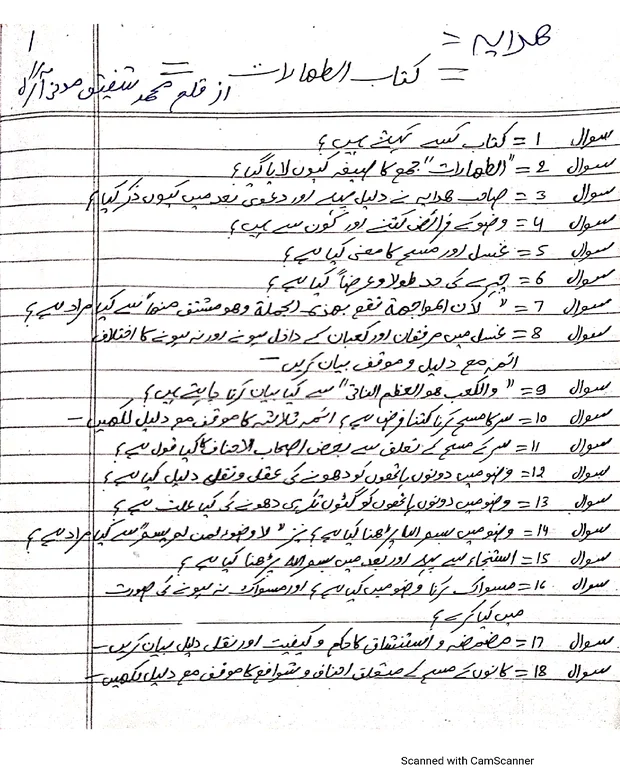 1
ھدایہ =
= کتاب الطھارات =
از قلم محمد شفیق مدنی
سوال 1 = کتاب کسے کہتے ہیں ؟
سوال 2 = "الطھارات" جمع کا صیغہ کیوں لایا گیا ؟
سوال 3 = صاحب ھدایہ نے دلیل پہلے اور دعویٰ بعد میں کیوں ذکر کیا ؟
سوال 4 = وضو کے فرائض کتنے اور کون سے ہیں ؟
سوال 5 = غسل اور مسح کا معنی کیا ہے ؟
سوال 6 = چہرے کی حد طولاً و عرضاً کیا ہے ؟
سوال 7 = "لأن المواجھة تقع بھذہ الجملة وھو مشتق منھا" سے کیا مراد ہے ؟
سوال 8 = غسل میں مرفقان اور کعبان کے داخل ہونے اور نہ ہونے کا اختلاف
ائمہ مع دلیل و موقف بیان کریں -
سوال 9 = "والکعب ھو العظم الناتی" سے کیا بیان کرنا چاہتے ہیں ؟
سوال 10 = سر کا مسح کرنا کتنا فرض ہے ؟ ائمہ ثلاثہ کا موقف مع دلیل لکھیں -
سوال 11 = سر کے مسح کے تعلق سے بعض اصحاب الاحناف کا کیا قول ہے ؟
سوال 12 = وضو میں دونوں ہاتھوں کو دھونے کی عقلی و نقلی دلیل کیا ہے ؟
سوال 13 = وضو میں دونوں ہاتھوں کو گٹوں تک ہی دھونے کی کیا علت ہے ؟
سوال 14 = وضو میں بسم اللہ پڑھنا کیا ہے ؟ نیز "لا وضوء لمن لم یسم" سے کیا مراد ہے ؟
سوال 15 = استنجاء سے پہلے اور بعد میں بسم اللہ پڑھنا کیا ہے ؟
سوال 16 = مسواک کرنا وضو میں کیا ہے ؟ اور مسواک نہ ہونے کی صورت
میں کیا کرے ؟
سوال 17 = مضمضہ و استنشاق کا حکم و کیفیت اور نقلی دلیل بیان کریں -
سوال 18 = کانوں کے مسح کے متعلق احناف و شوافع کا موقف مع دلیل لکھیں -
Scanned with CamScanner